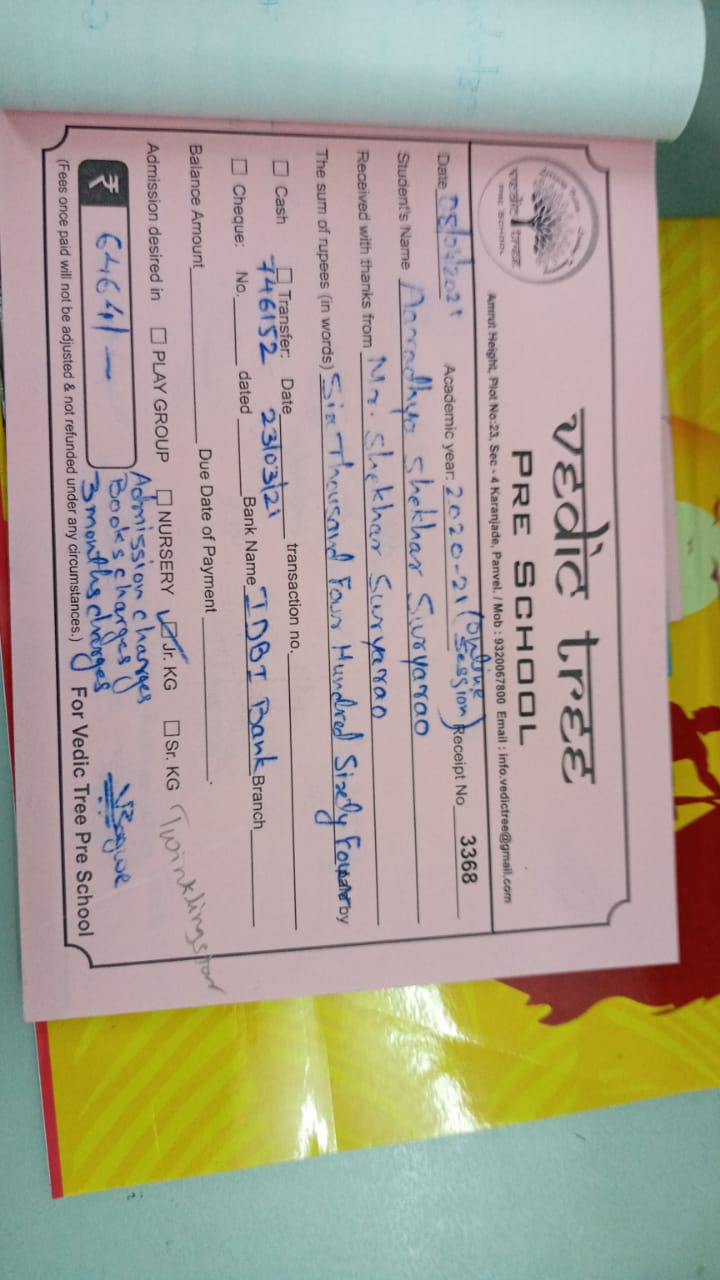 vedic tree
PRE SCHOOL
vedic tree
PRE SCHOOL
Amrut Height, Plot No:23, Sec - 4 Karanjade, Panvel. / Mob : 9320067800 Email : info.vedictree@gmail.com
Date 08/04/2021 Academic year: 2020-21 (Online Session) Receipt No. 3368
Student's Name Aaradhya Shekhar Suryarao
Received with thanks from Mr. Shekhar Suryarao
The sum of rupees (in words) Six Thousand Four Hundred Sixty Four by
Cash Transfer: Date 23/03/21 transaction no.
746152
Cheque: No. dated Bank Name IDBI Bank Branch
Balance Amount Due Date of Payment
Admission desired in PLAY GROUP NURSERY Jr. KG Sr. KG Twinklingstar
Admission charges
₹ 6464/- Books charges
3 months charges
(Fees once paid will not be adjusted & not refunded under any circumstances.) For Vedic Tree Pre School